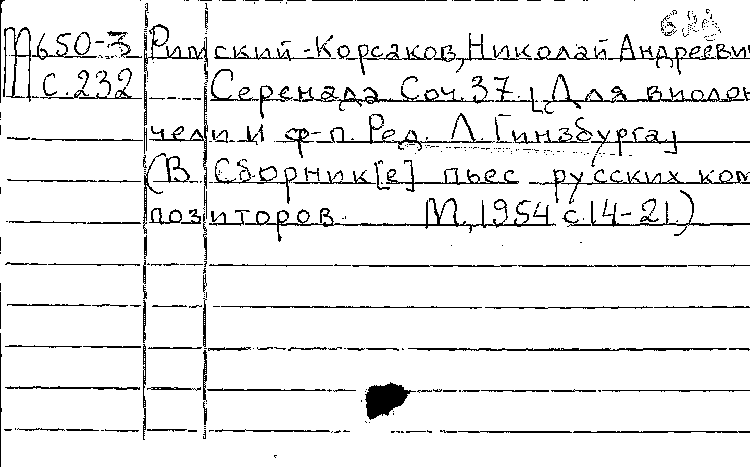 М650-3 Римский-Корсаков, Николай Андреевич
с.232 Серенада Соч. 37. [Для виолон
чели и ф-п. Ред. Л. Гинзбурга]
(В Сборник[е] пьес русских ком
позиторов. М., 1954 с. 14-21.)